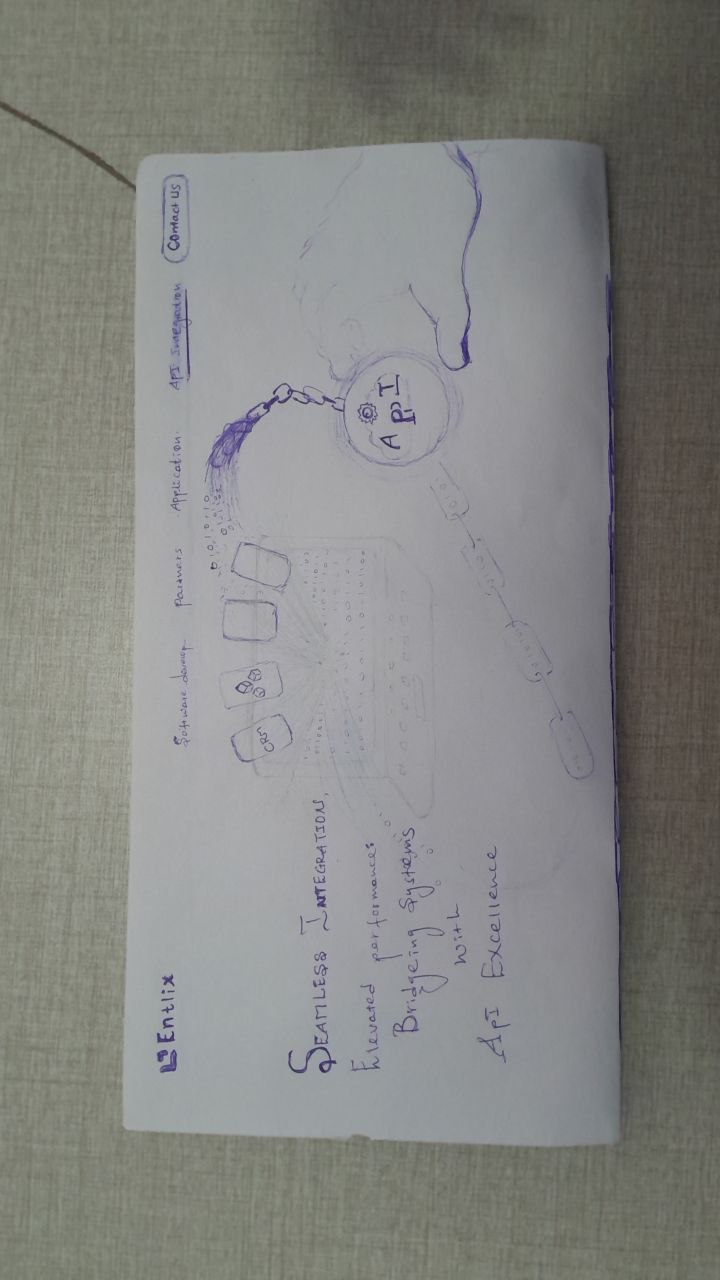 Entlix
Software develop
Partners
Application
API Integration
Contact Us
SEAMLESS INTEGRATION,
Elevated performance:
Bridgeing Systems
with
API Excellence
CRM
API
01010110